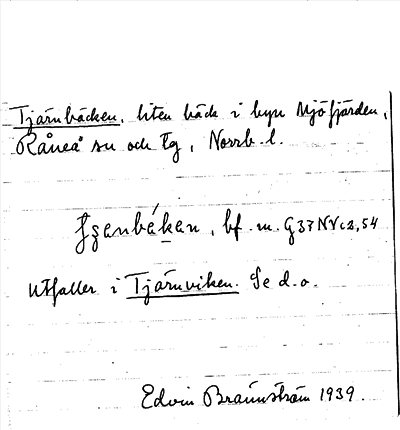 Tjärnbäcken, liten bäck i byn Mjöfjärden,
Råneå sn och tg, Norrb. l.
bf. m. G37NVc2,54
Utfaller i Tjärnviken. Se d.o.
Edvin Brännström 1939.